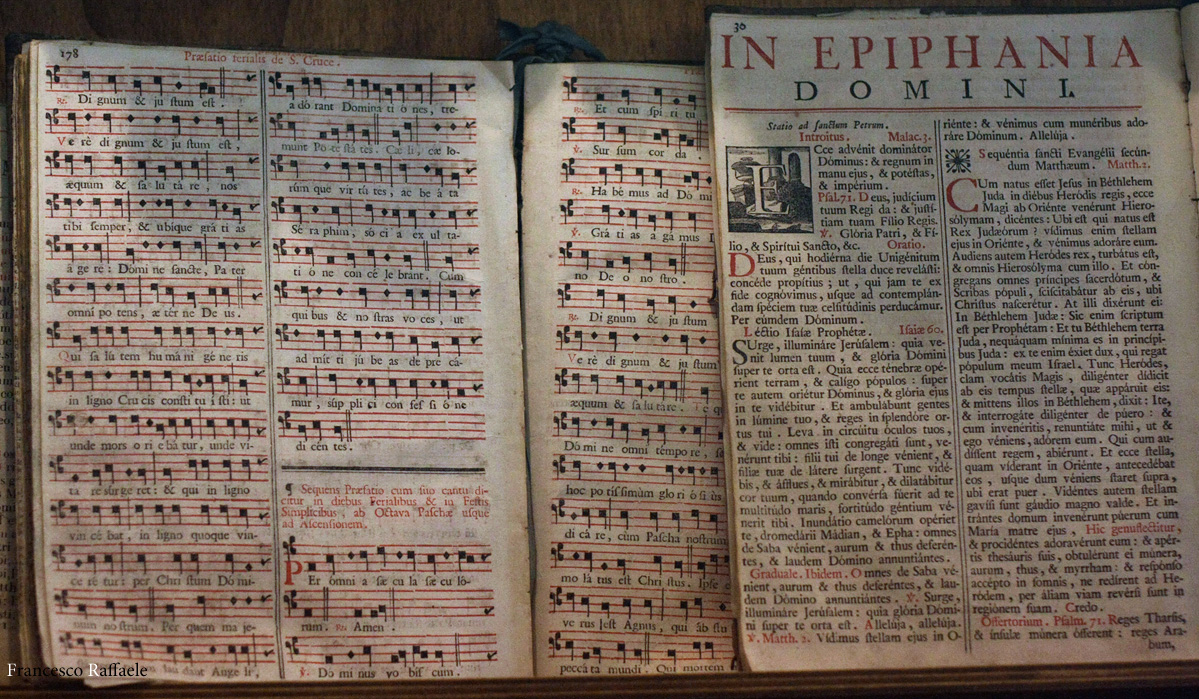 178
Præfatio ferialis de S. Cruce.
℟. Di gnum & ju stum est.
Ve rè di gnum & ju stum est,
æquum & sa lu tà re, nos
tibi semper, & ubique grá ti as
á ge re: Dómi ne sancte, Pa ter
omni po tens, æ tér ne De us.
Qui sa lú tem hu má ni gé ne ris
in ligno Cru cis consti tu i sti: ut
unde mors o ri e bá tur, unde vi-
ta re súrge ret: & qui in ligno
vin cé bat, in ligno quoque vin-
ce ré tur: per Chri stum Dó mi-
num no strum. Per quem ma je-
lau dant Ange li,
a dó rant Domina ti ó nes, tre-
munt Po te stá tes. Cæ li, cæ lo-
rúm que vir tú tes, ac be á ta
Sé ra phim, só ci a ex ul ta-
ti ó ne con cé le brant. Cum
qui bus & no stras vo ces, ut
ad mit ti jú be as de pre cá-
mur, súp pli ci con fes si ó ne
di cén tes.
¶ Sequens Præfatio cum suo cantu di-
citur in diebus Ferialibus & in Festis
Simplicibus, ab Octava Paschæ usque
ad Ascensionem.
PEr omni a sæ cu la sæ cu ló-
rum. ℟. Amen.
℣. Dó mi nus vo bis cum.
℟. Et cum spi ri tu
℣. Sur sum cor da.
℟. Ha bé mus ad Dó mi
℣. Grá ti as a ga mus
no De o no stro.
℟. Di gnum & ju stum
Ve rè di gnum & ju stum
æquum & sa lu tá re.
Dó mi ne omni témpo re, se
hoc po tís simùm glo ri ó si ùs
di cá re, cùm Pascha nostrum
mo lá tus est Chri stus. Ipse e
ve rus Jest Agnus, qui áb stu
peccá ta mundi. Qui mortem
30
IN EPIPHANIA
DOMINI.
Statio ad sanctum Petrum.
Introitus. Malac. 3.
Cce advénit dominátor
Dóminus: & regnum in
manu ejus, & potéstas,
& impérium.
Psal. 71. Deus, judícium
tuum Regi da: & justí-
tiam tuam Fílio Regis.
℣. Glória Patri, & Fí-
lio, & Spirítui Sancto, &c. Oratio.
DEus, qui hodiérna die Unigénitum
tuum géntibus stella duce revelásti:
concéde propítius; ut, qui jam te ex
fide cognóvimus, usque ad contemplán-
dam spéciem tuæ celsitúdinis perducámur.
Per eúmdem Dóminum.
Léctio Isaíæ Prophétæ. Isaiæ 60.
SUrge, illumináre Jerúsalem: quia ve-
nit lumen tuum, & glória Dómini
super te orta est. Quia ecce ténebræ opé-
rient terram, & calígo pópulos: super
te autem oriétur Dóminus, & glória ejus
in te vidébitur. Et ambulábunt gentes
in lúmine tuo, & reges in splendóre or-
tus tui. Leva in circúitu óculos tuos,
& vide: omnes isti congregáti sunt, ve-
nérunt tibi: fílii tui de longe vénient, &
fíliæ tuæ de látere surgent. Tunc vidé-
bis, & áfflues, & mirábitur, & dilatábitur
cor tuum, quando convérsa fúerit ad te
multitúdo maris, fortitúdo géntium vé-
nerit tibi. Inundátio camelórum opériet
te, dromedárii Mádian, & Epha: omnes
de Saba vénient, aurum & thus deferén-
tes, & laudem Dómino annuntiántes.
Graduale. Ibidem. Omnes de Saba vé-
nient, aurum & thus deferéntes, & lau-
dem Dómino annuntiántes. ℣. Surge,
illumináre Jerúsalem: quia glória Dómi-
ni super te orta est. Allelúja, allelúja.
℣. Matth. 2. Vídimus stellam ejus in O-
riénte: & vénimus cum munéribus ado-
ráre Dóminum. Allelúja.
Sequéntia sancti Evangélii secún-
dum Matthæum. Matth. 2.
CUm natus esset Jesus in Béthlehem
Juda in diébus Heródis regis, ecce
Magi ab Oriénte venérunt Hiero-
sólymam, dicéntes: Ubi est qui natus est
Rex Judæórum? vídimus enim stellam
ejus in Oriénte, & vénimus adoráre eum.
Audiens autem Heródes rex, turbátus est,
& omnis Hierosólyma cum illo. Et cón-
gregans omnes príncipes sacerdótum, &
Scribas pópuli, sciscitabátur ab eis, ubi
Christus nascerétur. At illi dixérunt ei:
In Béthlehem Judæ: Sic enim scriptum
est per Prophétam: Et tu Béthlehem terra
Juda, nequáquam mínima es in princípi-
bus Juda: ex te enim éxiet dux, qui regat
pópulum meum Israel. Tunc Heródes,
clam vocátis Magis, diligénter dídicit
ab eis tempus stellæ, quæ appáruit eis:
& mittens illos in Béthlehem, dixit: Ite,
& interrogáte diligénter de púero: &
cum invenéritis, renuntiáte mihi, ut &
ego véniens, adórem eum. Qui cum au-
díssent regem, abiérunt. Et ecce stella,
quam víderant in Oriénte, antecédebat
eos, usque dum véniens staret supra,
ubi erat puer. Vidéntes autem stellam
gavísi sunt gáudio magno valde. Et in-
trántes domum invenérunt púerum cum
María matre ejus, Hic genuflectitur,
& procidéntes adoravérunt eum: & apér-
tis thesáuris suis, obtulérunt ei múnera,
aurum, thus, & myrrham: & respónso
accépto in somnis, ne redírent ad He-
ródem, per áliam viam revérsi sunt in
regiónem suam. Credo.
Offertorium. Psalm. 71. Reges Tharsis,
& ínsulæ múnera ófferent: reges Ara-
bum,
Francesco Raffaele